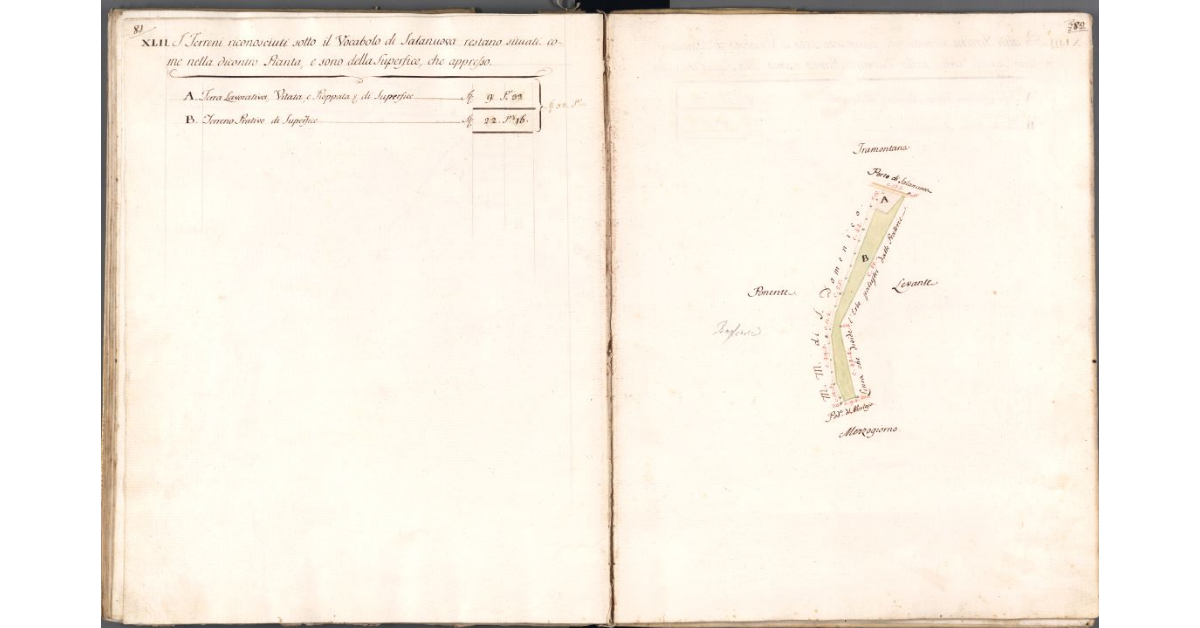 81
XLII. I Terreni riconosciuti sotto il Vocabolo di Satanuova restano situati co-
me nella dicontro Pianta, e sono della Superfice, che appresso.
A. Terra Lavorativa, Vitata, e Pioppata di Superfice
9
B. Terreno Prativo di Superfice
22 16.
82
Tramontana
Porto di Satanuova
A
B
M. M. di S. Domenico
Linea che divide
Ponente
Levante
Mezzogiorno